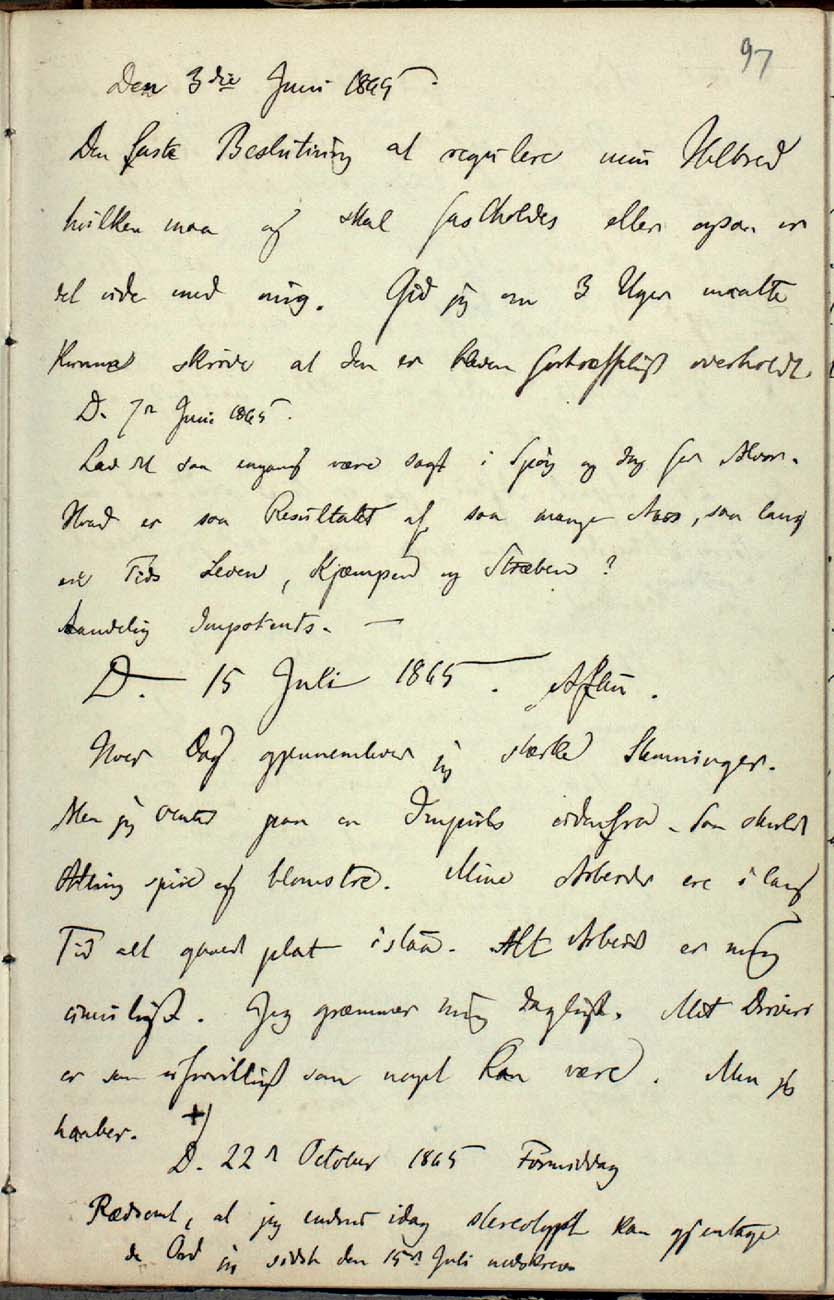 97
Den 3die Juni 1865.
Den faste Beslutning at regulere min Helbred
hvilken maa og skal fastholdes ellers er
det ude med mig. Gid jeg om 3 Uger maatte
kunne skrive at den er bleven fortræffeligt overholdt.
D. 7n Juni 1865.
Lad det saa engang være sagt i Spøg og dog for Alvor.
Hvad er saa Resultatet af saa mange Aars, saa lang
en Tids Leven, Kjæmpen og Stræben?
Aandelig Impotents. —
D. 15 Juli 1865. Aften.
Hver Dag gjennemlever jeg stærke Stemninger.
Men jeg venter paa en Impuls udenfra. Saa skulde
Alting spire og blomstre. Mine Arbeider ere i lang
Tid alt gaaet plat istaa. Alt Arbeid er mig
umuligt. Jeg græmmer mig dagligt. Mit Driveri
er saa ufrivilligt som noget kan være. Men jeg
haaber. +)
D. 22n October 1865 Formiddag
Rædsomt, at jeg endnu idag stereotypt kan gjentage
de Ord jeg sidst den 15n Juli nedskrev